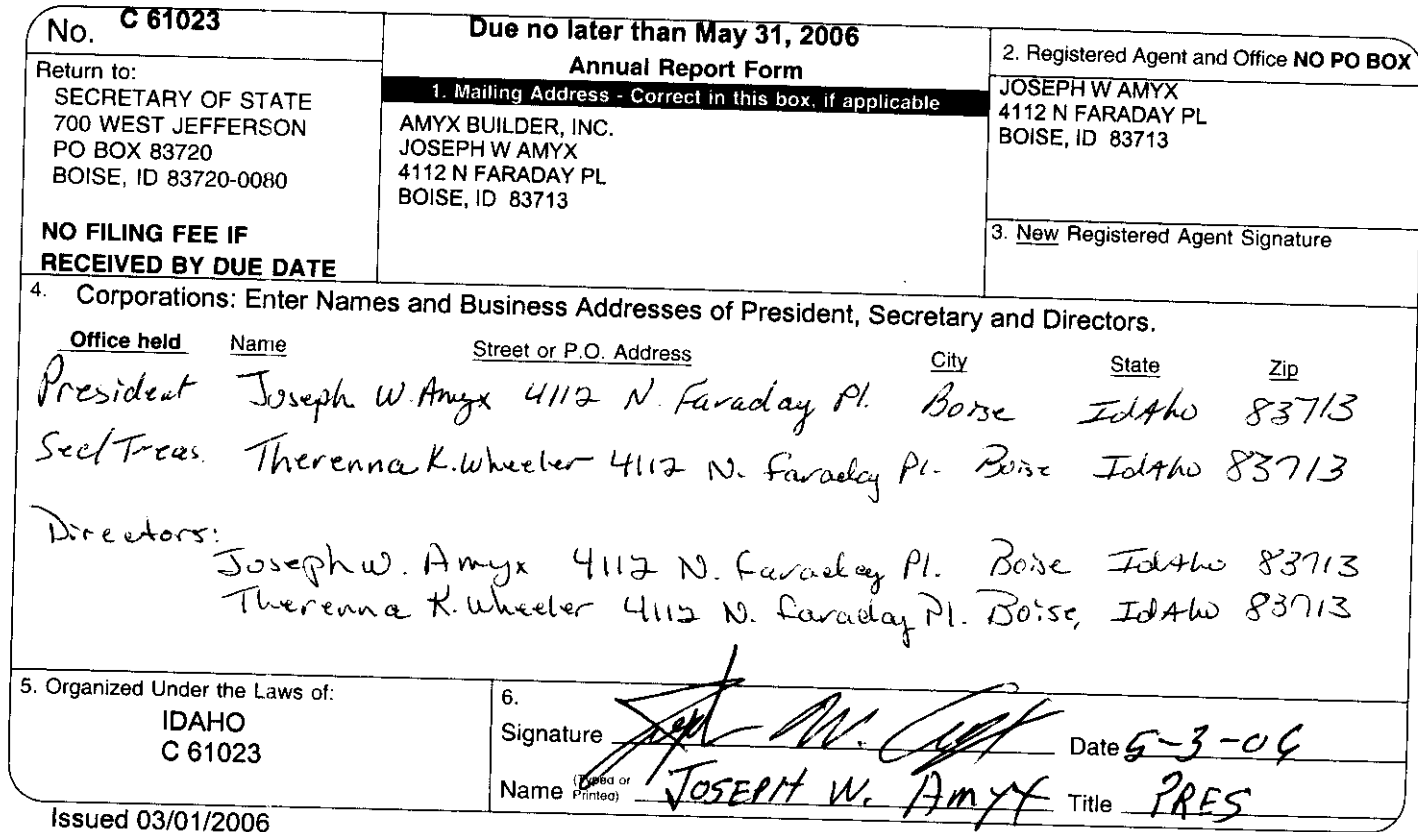 No. C 61023
Return to:
SECRETARY OF STATE
700 WEST JEFFERSON
PO BOX 83720
BOISE, ID 83720-0080
NO FILING FEE IF
RECEIVED BY DUE DATE
Due no later than May 31, 2006
Annual Report Form
1. Mailing Address - Correct in this box, if applicable
AMYX BUILDER, INC.
JOSEPH W AMYX
4112 N FARADAY PL
BOISE, ID 83713
2. Registered Agent and Office NO PO BOX
JOSEPH W AMYX
4112 N FARADAY PL
BOISE, ID 83713
3. New Registered Agent Signature
4. Corporations: Enter Names and Business Addresses of President, Secretary and Directors.
Office held Name Street or P.O. Address City State Zip
President Joseph W. Amyx 4112 N. Faraday Pl. Boise IdAho 83713
Sec/Treas. Therenna K. Wheeler 4112 N. Faraday Pl. Boise IdAho 83713
Directors:
Joseph W. Amyx 4112 N. Faraday Pl. Boise IdAho 83713
Therenna K. Wheeler 4112 N. Faraday Pl. Boise, IdAho 83713
5. Organized Under the Laws of:
IDAHO
C 61023
6.
Signature Joseph W. Amyx Date 5-3-06
Name (Typed or Printed) JOSEPH W. AMYX Title PRES
Issued 03/01/2006